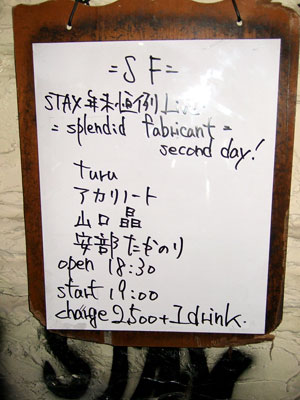 = S F =
STAX年末恒例
= splendid fabricant =
second day!
turu
アカリノート
山口 晶
安部たかのり
open 18:30
start 19:00
charge 2,500+1drink.
STAX